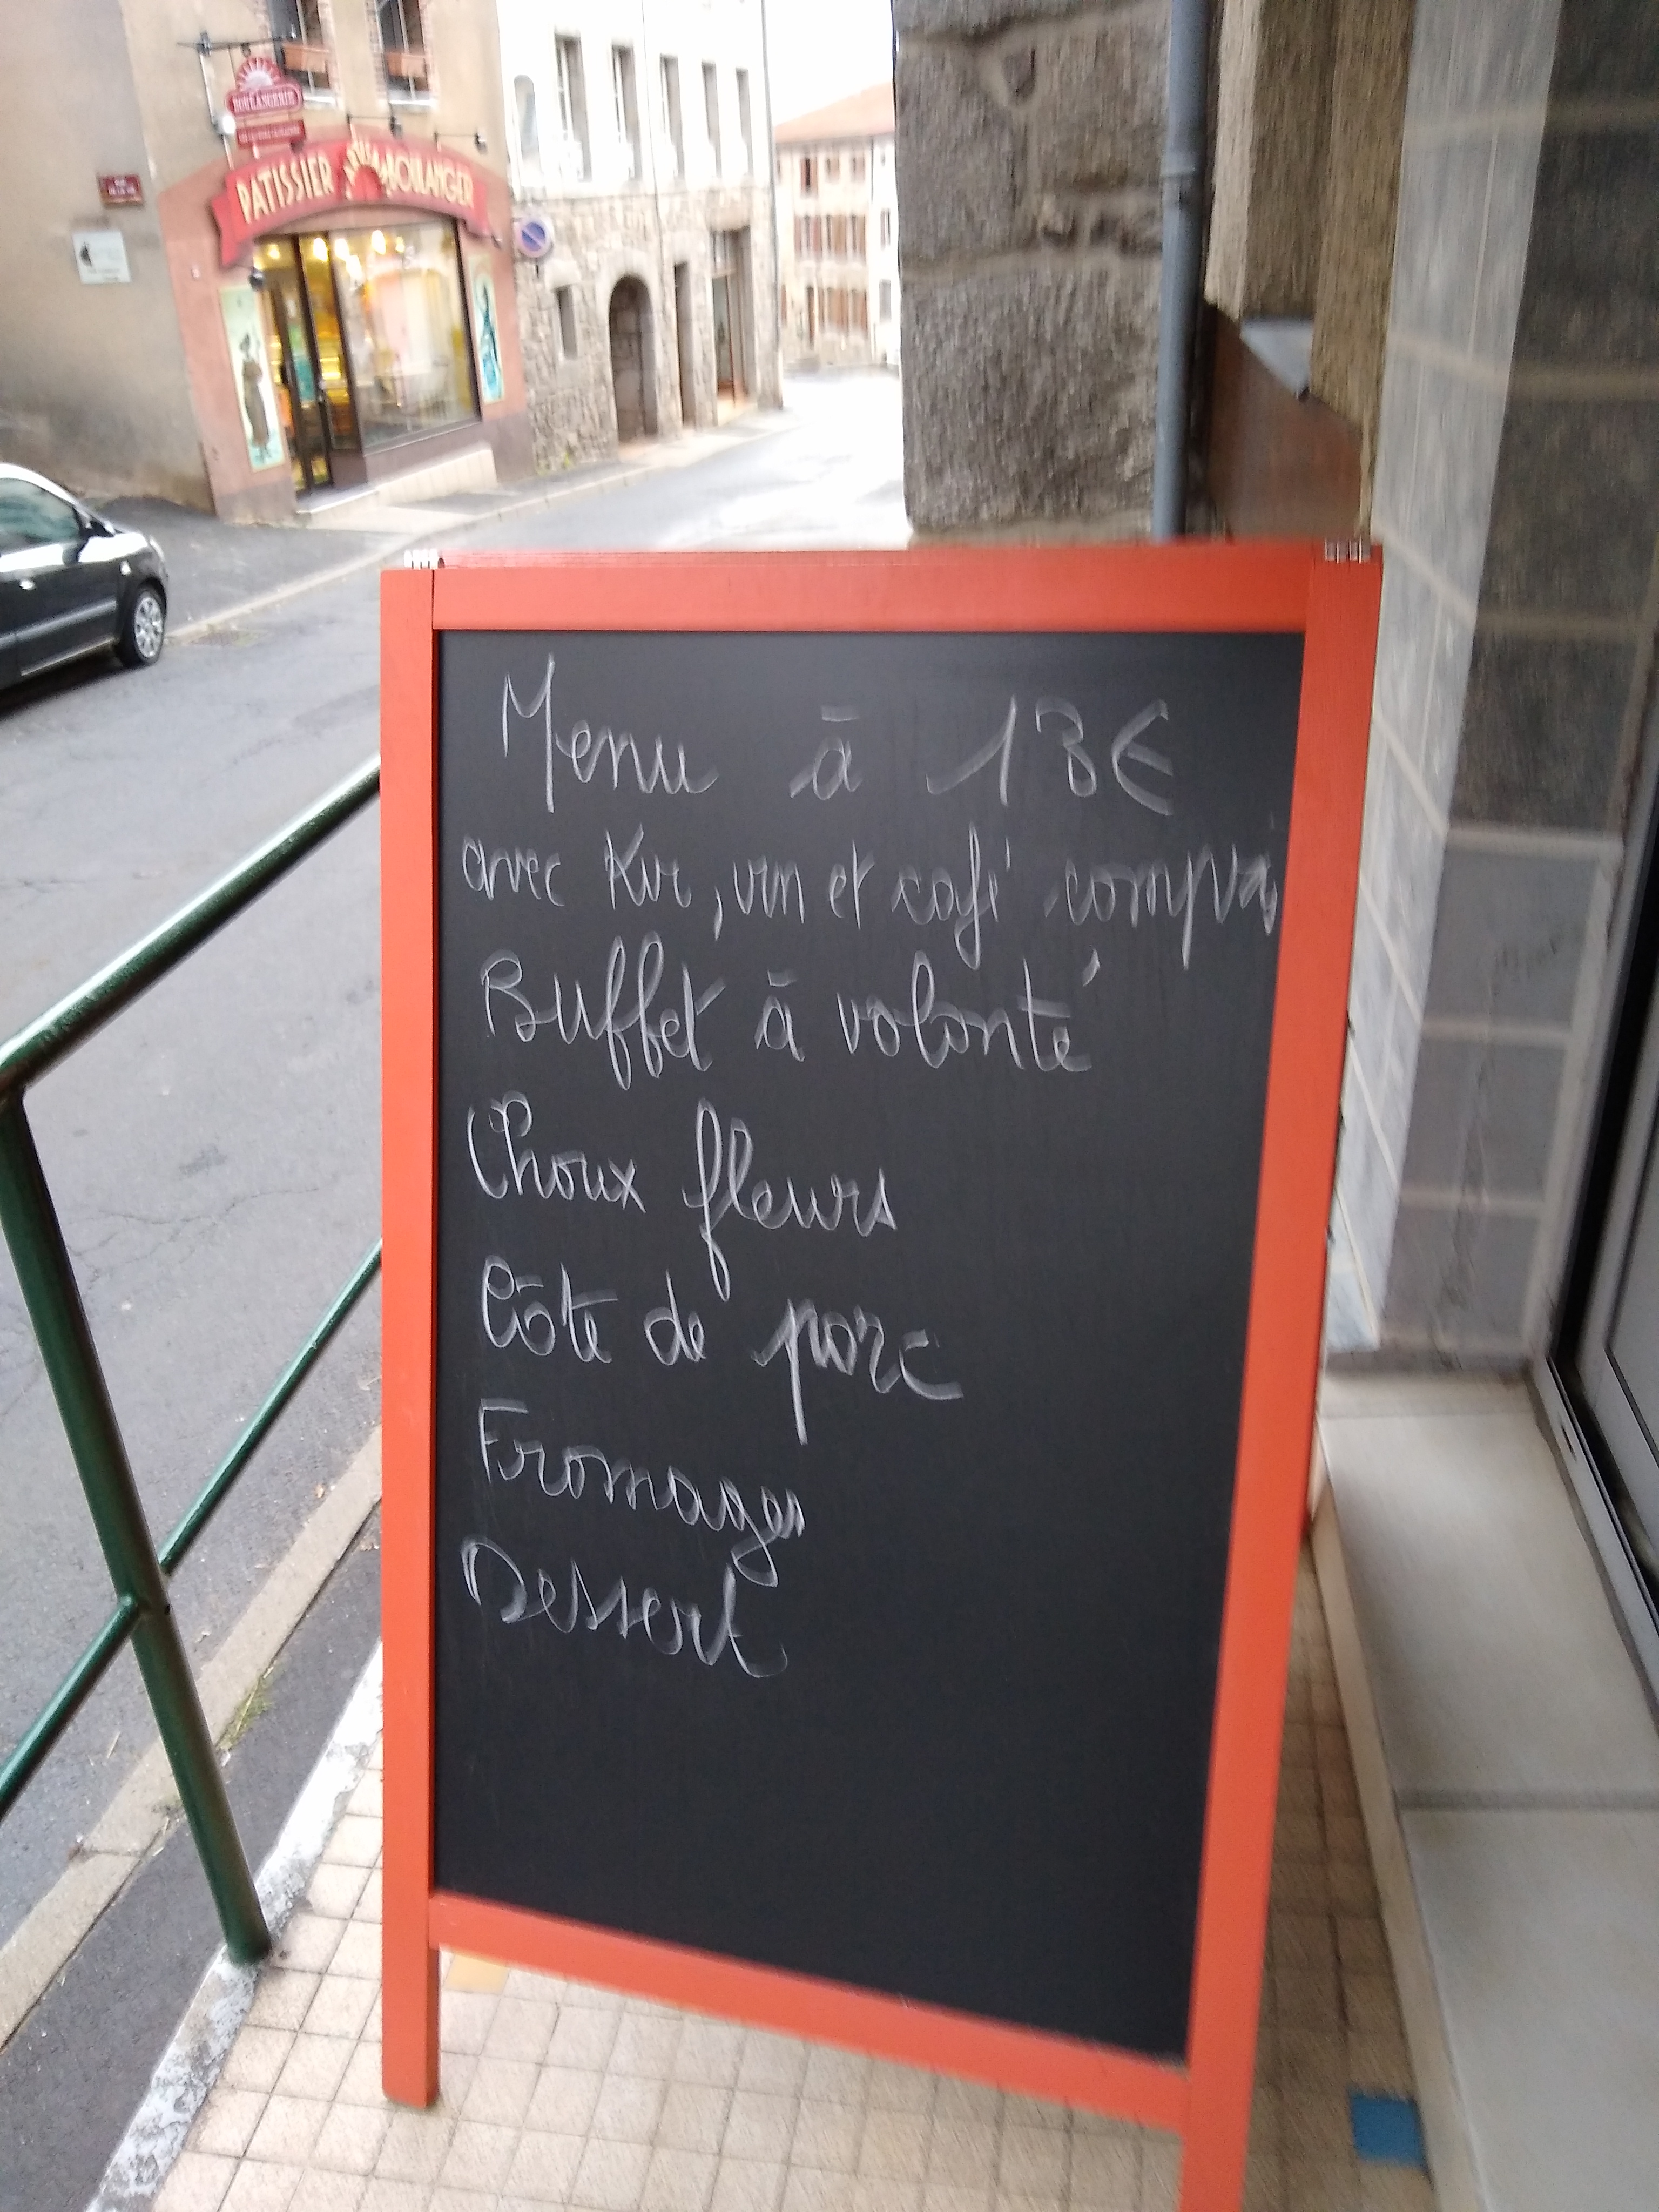 BOULANGERIE
PATISSIER BOULANGER
Menu à 13€
avec Kir, vin et café compris
Buffet à volonté
Choux fleurs
Côte de porc
Fromages
Dessert